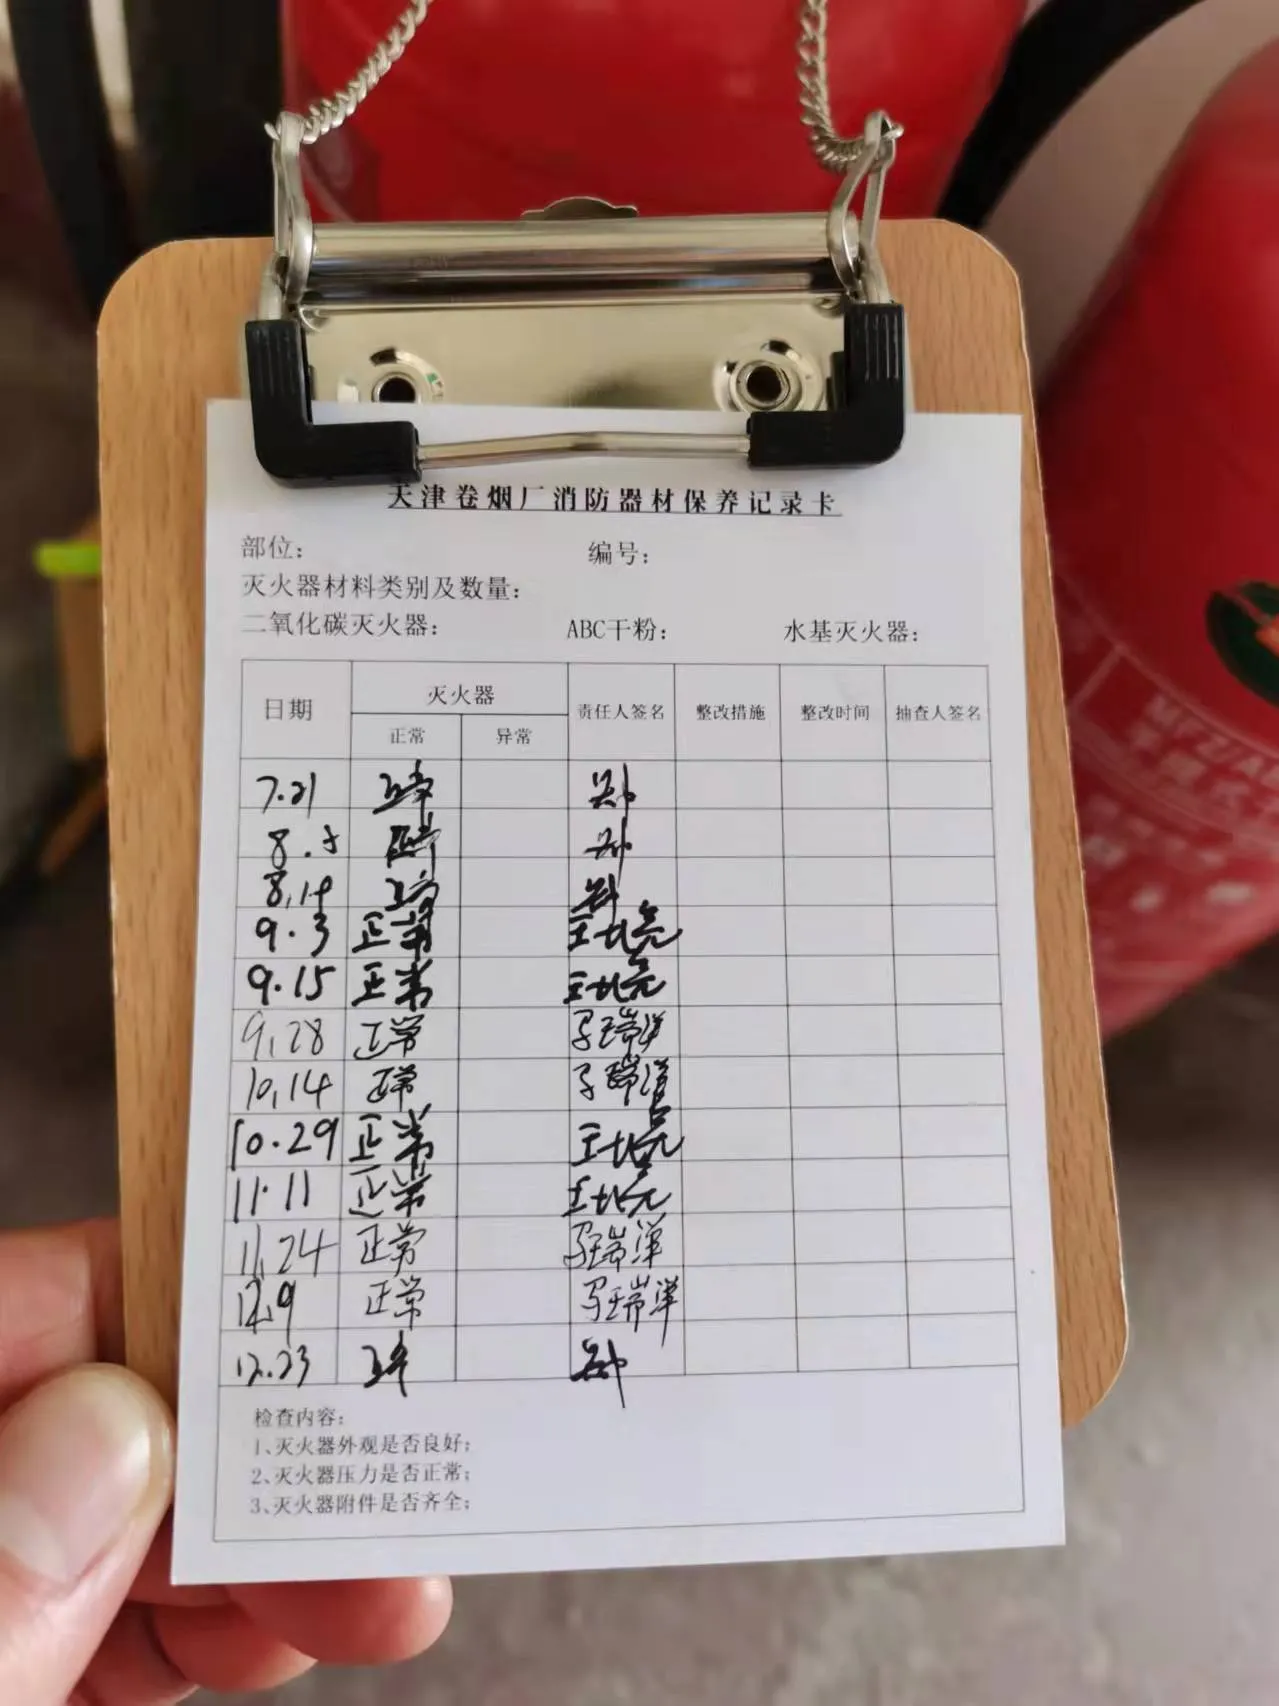 天津卷烟厂消防器材保养记录卡
部位： 编号：
灭火器材料类别及数量：
二氧化碳灭火器： ABC干粉： 水基灭火器：
日期 灭火器 责任人签名 整改措施 整改时间 抽查人签名
正常 异常
7.21 正常
8.5 正常
8.14 正常
9.3 正常
9.15 正常
9.28 正常 马瑞洋
10.14 正常 马瑞洋
10.29 正常
11.11 正常
11.24 正常 马瑞洋
12.9 正常 马瑞洋
12.23 正常
检查内容：
1、灭火器外观是否良好；
2、灭火器压力是否正常；
3、灭火器附件是否齐全；